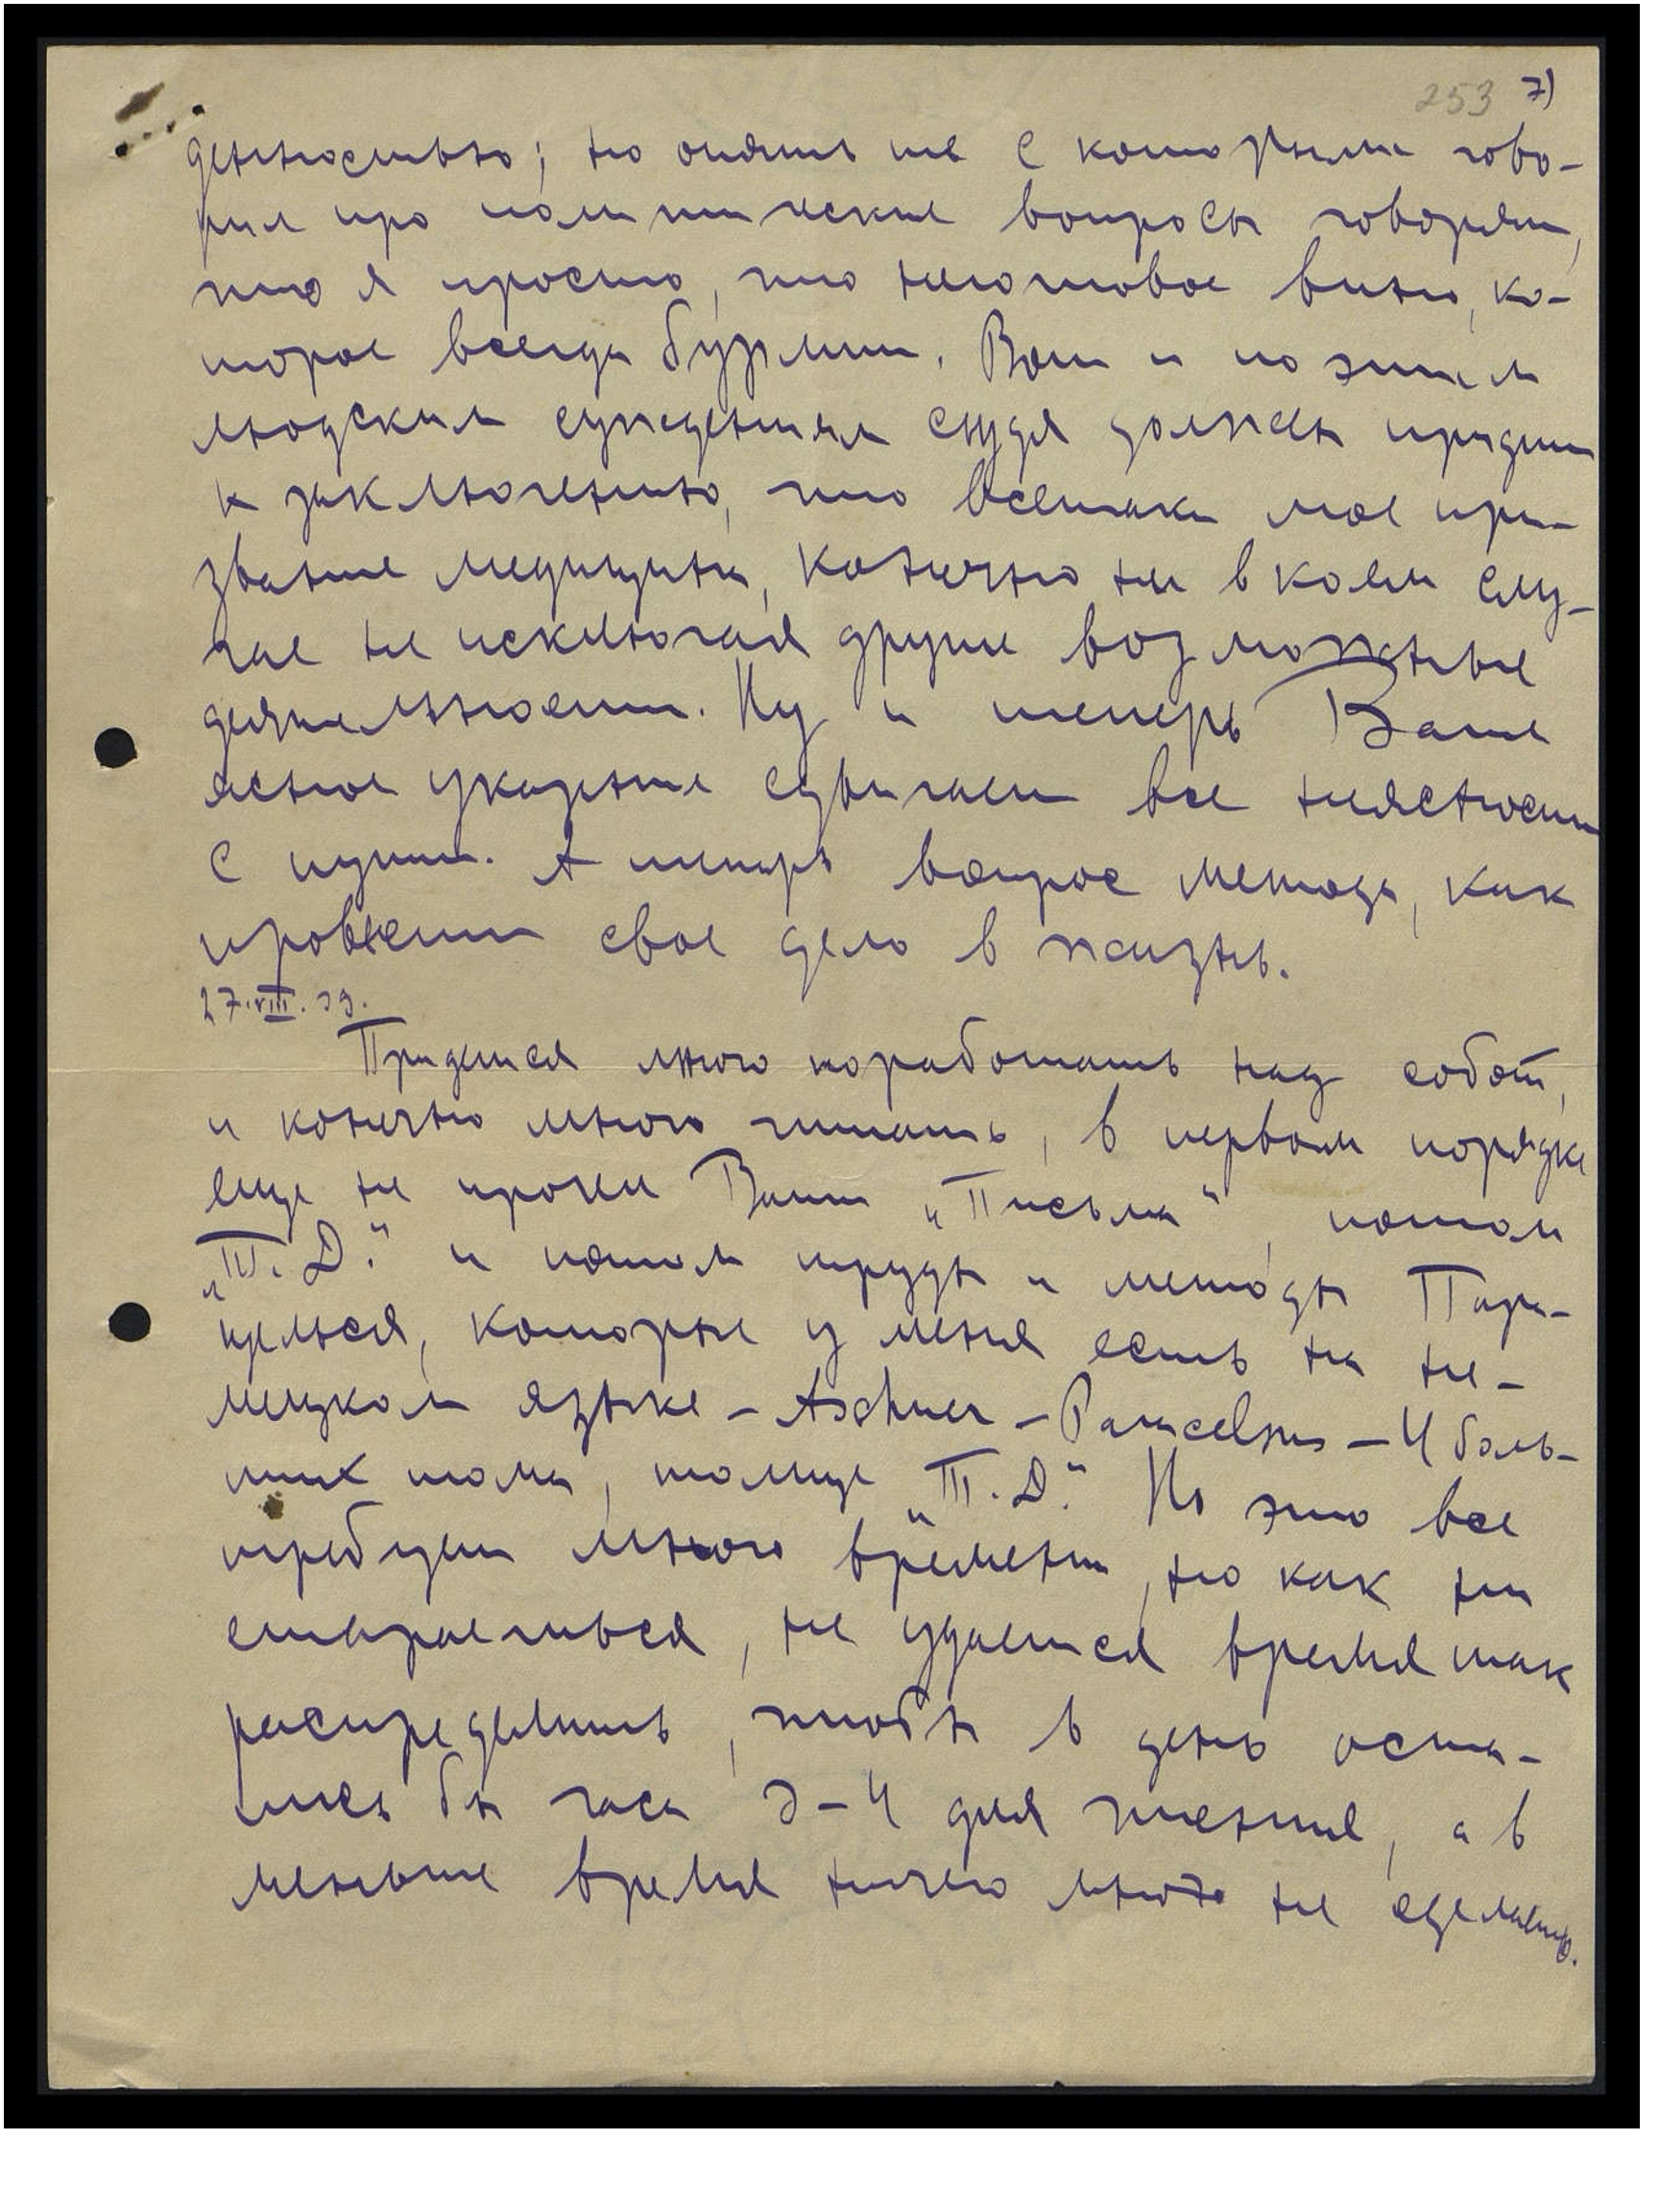 253 7)
денностью; но опять те с которыми гово-
рил про политические вопросы говорят,
что я просто, что неготовое вино, ко-
торое всегда бурлит. Вот и по этим
людским суждениям судя должен придти
к заключению, что всетаки мое при-
звание медицина, конечно ни в коем слу-
чае не исключая другие возможные
деятельности. Ну и теперь Ваше
ясное указание сдвигает все неясности
с пути. А теперь вопрос метода, как
провести свое дело в жизнь.
27.VIII.39.
Придется много поработать над собой,
и конечно много читать, в первом порядке
еще не прочел Ваши „Письма“, потом
„Т.Д.“ и потом труды и методы Пара-
цельса, которые у меня есть на не-
мецком языке – Aschner – Paracelsus – 4 боль-
ших тома, толще „Т.Д.“ Но это все
требует много времени, но как ни
стараешься, не удается время так
распределить, чтобы в день оста-
лись бы часа 3–4 для чтения, а в
меньше время ничего много не сделаешь.